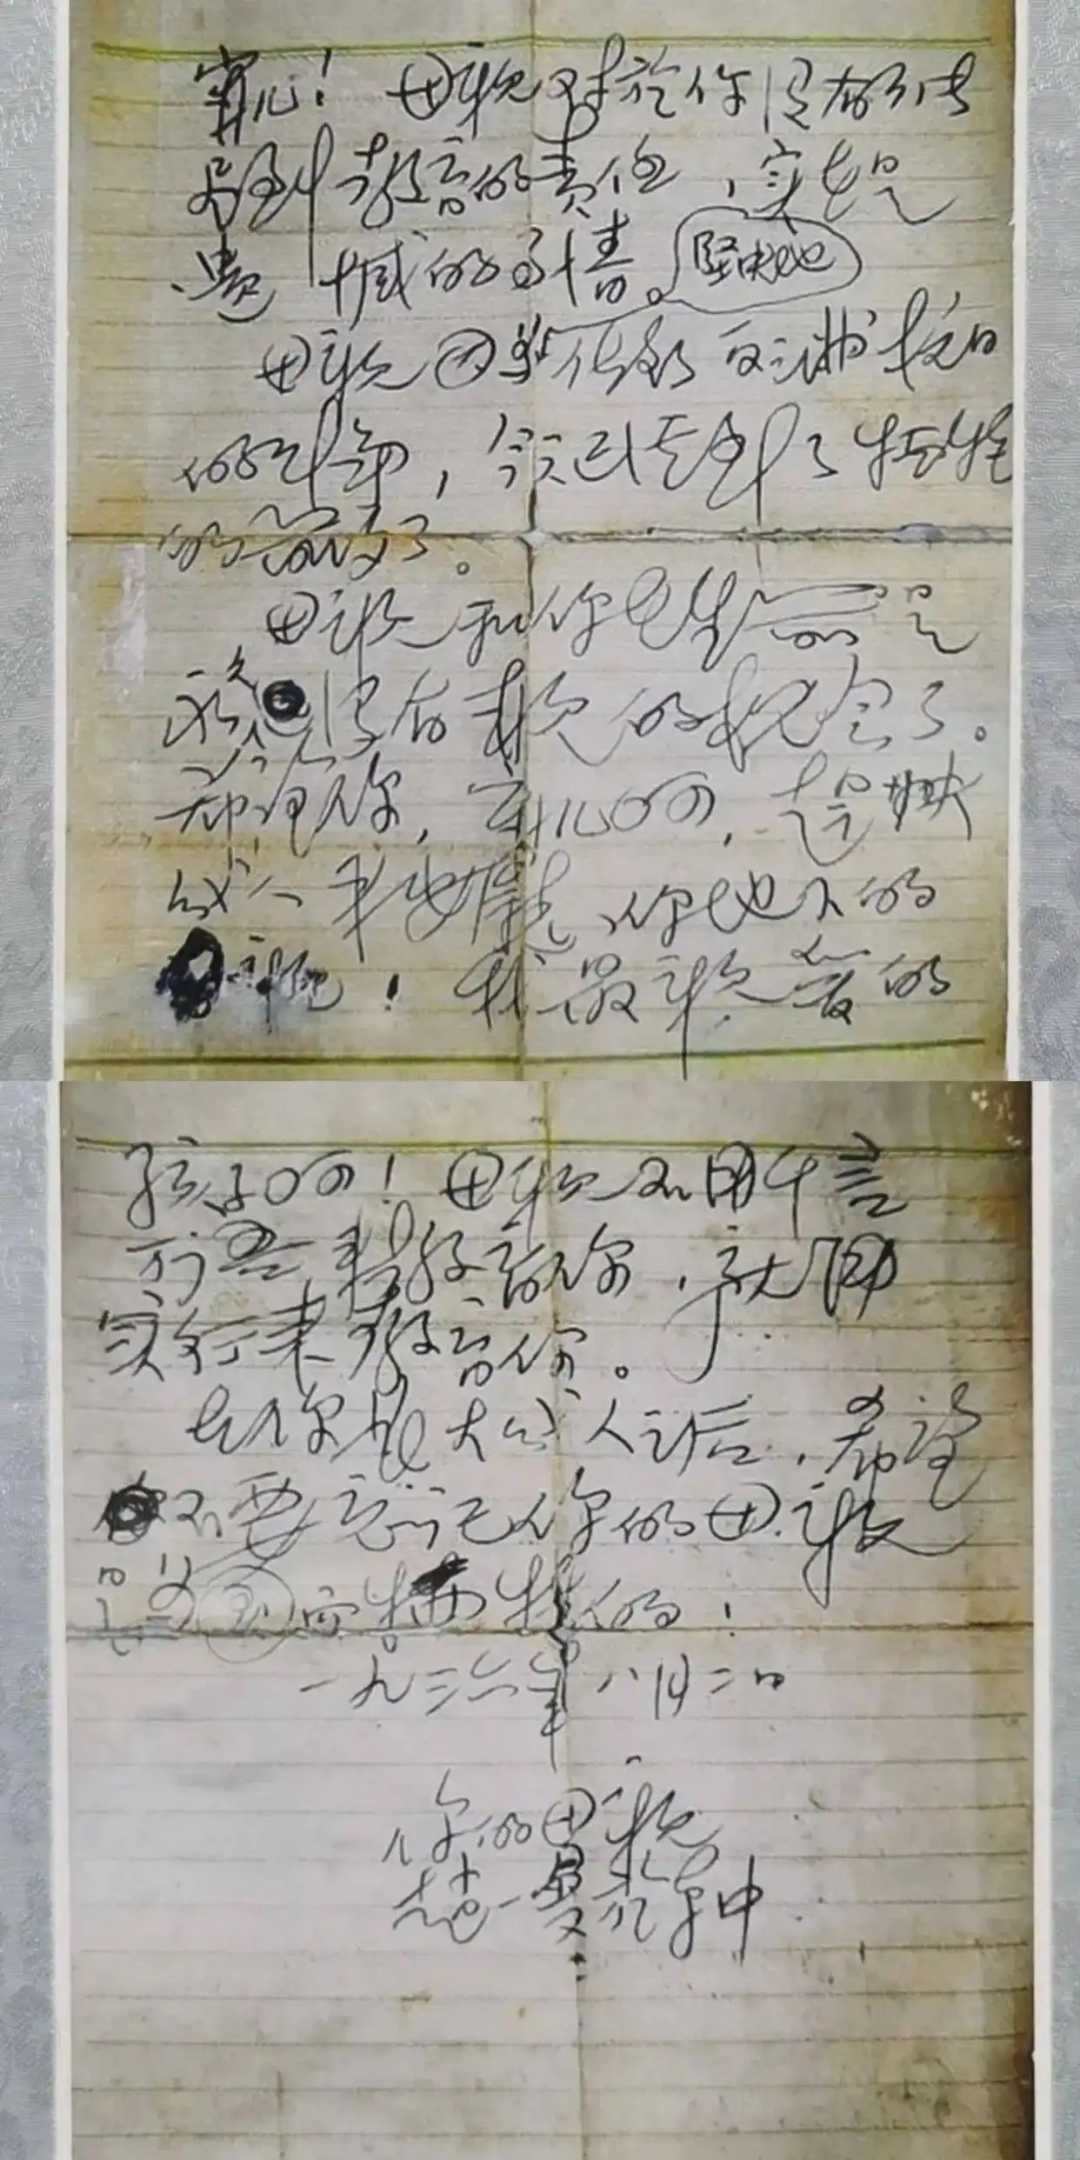 宁儿！母亲对于你没有能尽
到教育的责任，实在是
遗憾的事情。
坚决地
母亲因为作了反满抗日
的斗争，今天已经到了牺牲
的前夕了。
母亲和你在生前是
永久没有再见的机会了。
希望你，宁儿啊，赶快
成人，来安慰你地下的
母亲！我最亲爱的
孩子啊！母亲不用千言
万语来教育你，就用
实行来教育你。
在你长大成人之后，希望
不要忘记你的母亲
是为国而牺牲的！
一九三六年八月二日
你的母亲
赵一曼于车中